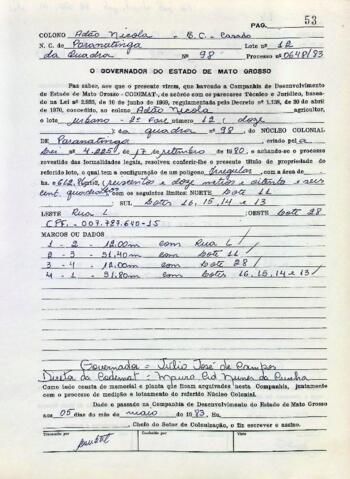 PAG. 53
COLONO Adão Nicola - B.C. - Casado
N. C. de Paranatinga Lote nº 12
da Quadra Nº 98 Processo nº 0648/83
O GOVERNADOR DO ESTADO DE MATO GROSSO
Faz saber, aos que o presente virem, que havendo a Companhia de Desenvolvimento
do Estado de Mato Grosso - CODEMAT, de acôrdo com os pareceres Técnico e Jurídico, basea-
do na Lei nº 2.935, de 16 de junho de 1969, regulamentada pelo Decreto nº 1.138, de 30 de abril
de 1970, concedido, ao colono Adão Nicola agricultor,
o lote urbano - 2ª Fase número 12 ( doze
) da quadra nº 98, do NÚCLEO COLONIAL
DE Paranatinga, criado pela
Lei nº 4.225, de 17 de setembro de 1980, e achando-se o processo
revestido das formalidades legais, resolveu conferir-lhe o presente título de propriedade do
referido lote, o qual tem a configuração de um polígono irregular, com a área de
(seiscentos e doze metros e oitenta e seis
cent. quadrados) com os seguintes limites: NORTE lote 11
; SUL lotes 16, 15, 14 e 13
LESTE Rua L ; OESTE lote 28
CPF. - 007.787.640-15
MARCOS OU DADOS
1 - 2 - 12.00m com Rua L /
2 - 3 - 51.40m com lote 11 /
3 - 4 - 12.00m com lote 28 /
4 - 1 - 51.80m com lotes 16, 15, 14 e 13 /
Governador = Júlio José de Campos
Diretor da Codemat = Mauro Cid Nunes da Cunha
Como tudo consta do memorial e planta que ficam arquivados nesta Companhia, juntamente
com o processo de medição e loteamento do referido Núcleo Colonial.
Dado e passado na Companhia de Desenvolvimento do Estado de Mato Grosso
aos 05 dias do mês de maio de 1983. Eu,
, Chefe do Setor de Colonização, o fiz escrever e assino.
Transcrito por Conferido por Visto